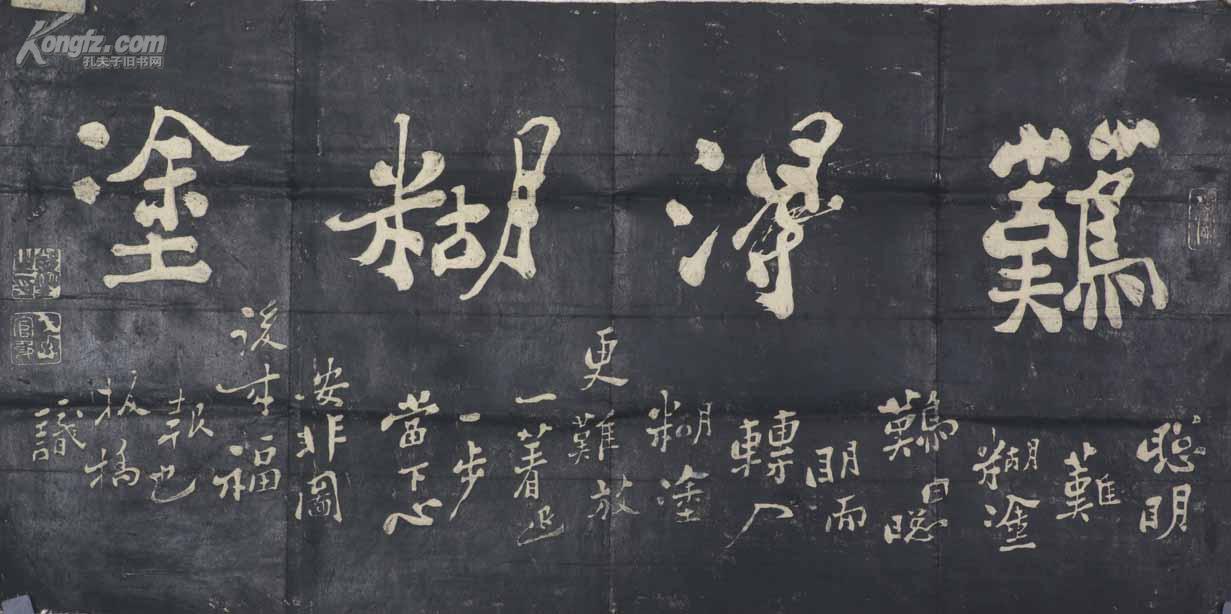 Kongfz.com
孔夫子旧书网
難得糊塗
聰明
難
糊塗
難由聰
明而
轉入
糊塗
更難放
一着退
一步
當下心
安非圖
後来福
報也
板橋
識